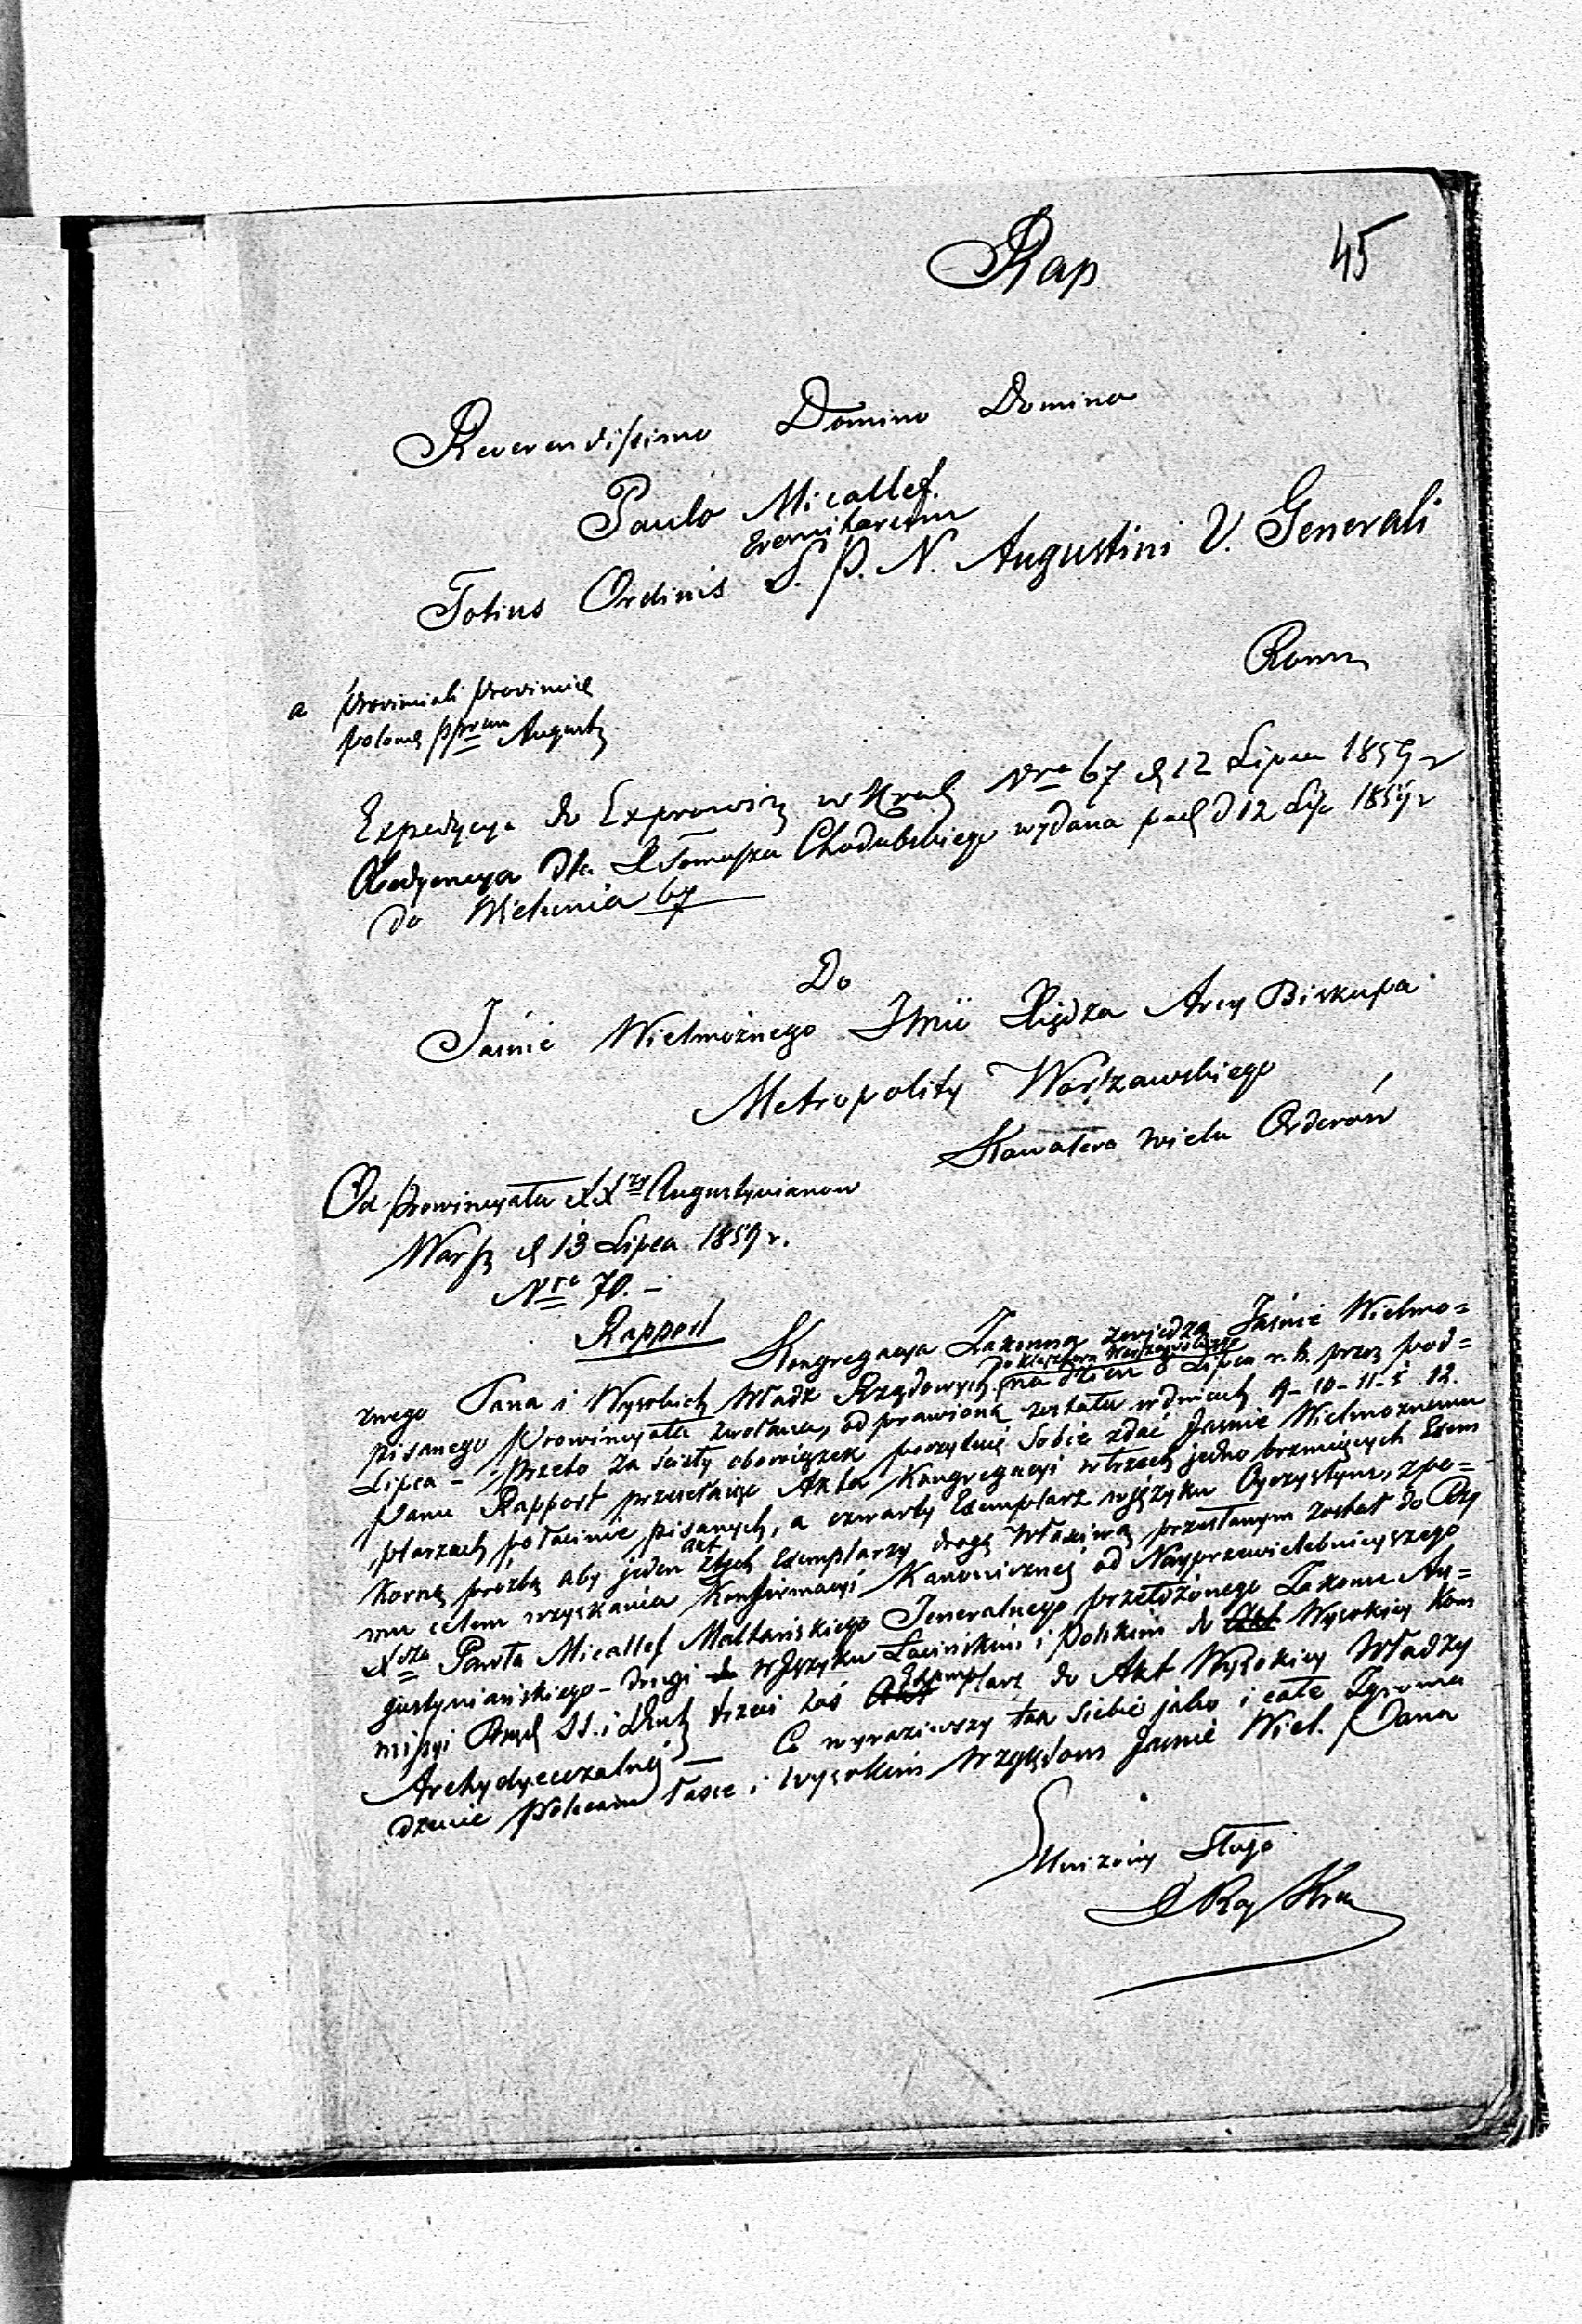 45
Rap
Reverendissimo Domino Domino
Paulo Micallef.
Eremitarum
Totius Ordinis S. P. N. Augustini V. Generali
Roma
a Provinciali Provinciæ
Polonę Augusty
Expedycya do Exprowin w Krak Nro 67 d 12 Lipca 1859 r
Obedyencya dla X Tomasza Chodubskiego wydana pod d 12 Lip 1859 r
do Wielunia 67
Do
Jaśnie Wielmożnego JMci Xiędza Arcy Biskupa
Metropolity Warszawskiego
Kawalera wielu Orderów
Od Prowincyału XXzy Augustyianow
Warsz d 13 Lipca 1859 r.
Nro 70. –
Rapport
Kongregacya Zakonna zwiedzą Jaśnie Wielmo=
do Klasztoru Warszawskiego
żnego Pana i Wysokich Władz Rządowych na dzień 8 Lipca r. b. przez pod=
pisanego Prowincyała zwołana, odprawioną została w dniach 9 - 10 - 11 - i 12.
Lipca – przeto za ścisły obowiązek poczytuię Sobie zdać Jaśnie Wielmożnemu
Panu Rapport przesełaiąc Akta Kongregacyi w trzech jedno brzmiących Exem
plarzach po łacinie pisanych, a czwarty Exemplarz w języku Oyczystym, z po=
korną prozbą aby jeden z tych Exemplarzy drogą Właściwą przesłanym został do Rzy
akt
mu celem uzyskania Konfirmacyi Kanoniczney od Nayprzewielebnieyszego
Xdza Pawła Micallef Maltańskiego Jeneralnego przełożonego Zakonu Au=
gustyniańskiego – drugi w Języku Łacińskim i Polskim do Wysokiey Kom
missyi Rząd SS. i Duch trzeci zaś Exemplarz do Akt Wysokiey Władzy
Archydyecezalnéj – Co wyraziwszy tak siebie jako i całe Zgroma
dzenie Polecam łasce i wysokim Względom Jaśnie Wiel. Pana
Uniżony Sługa